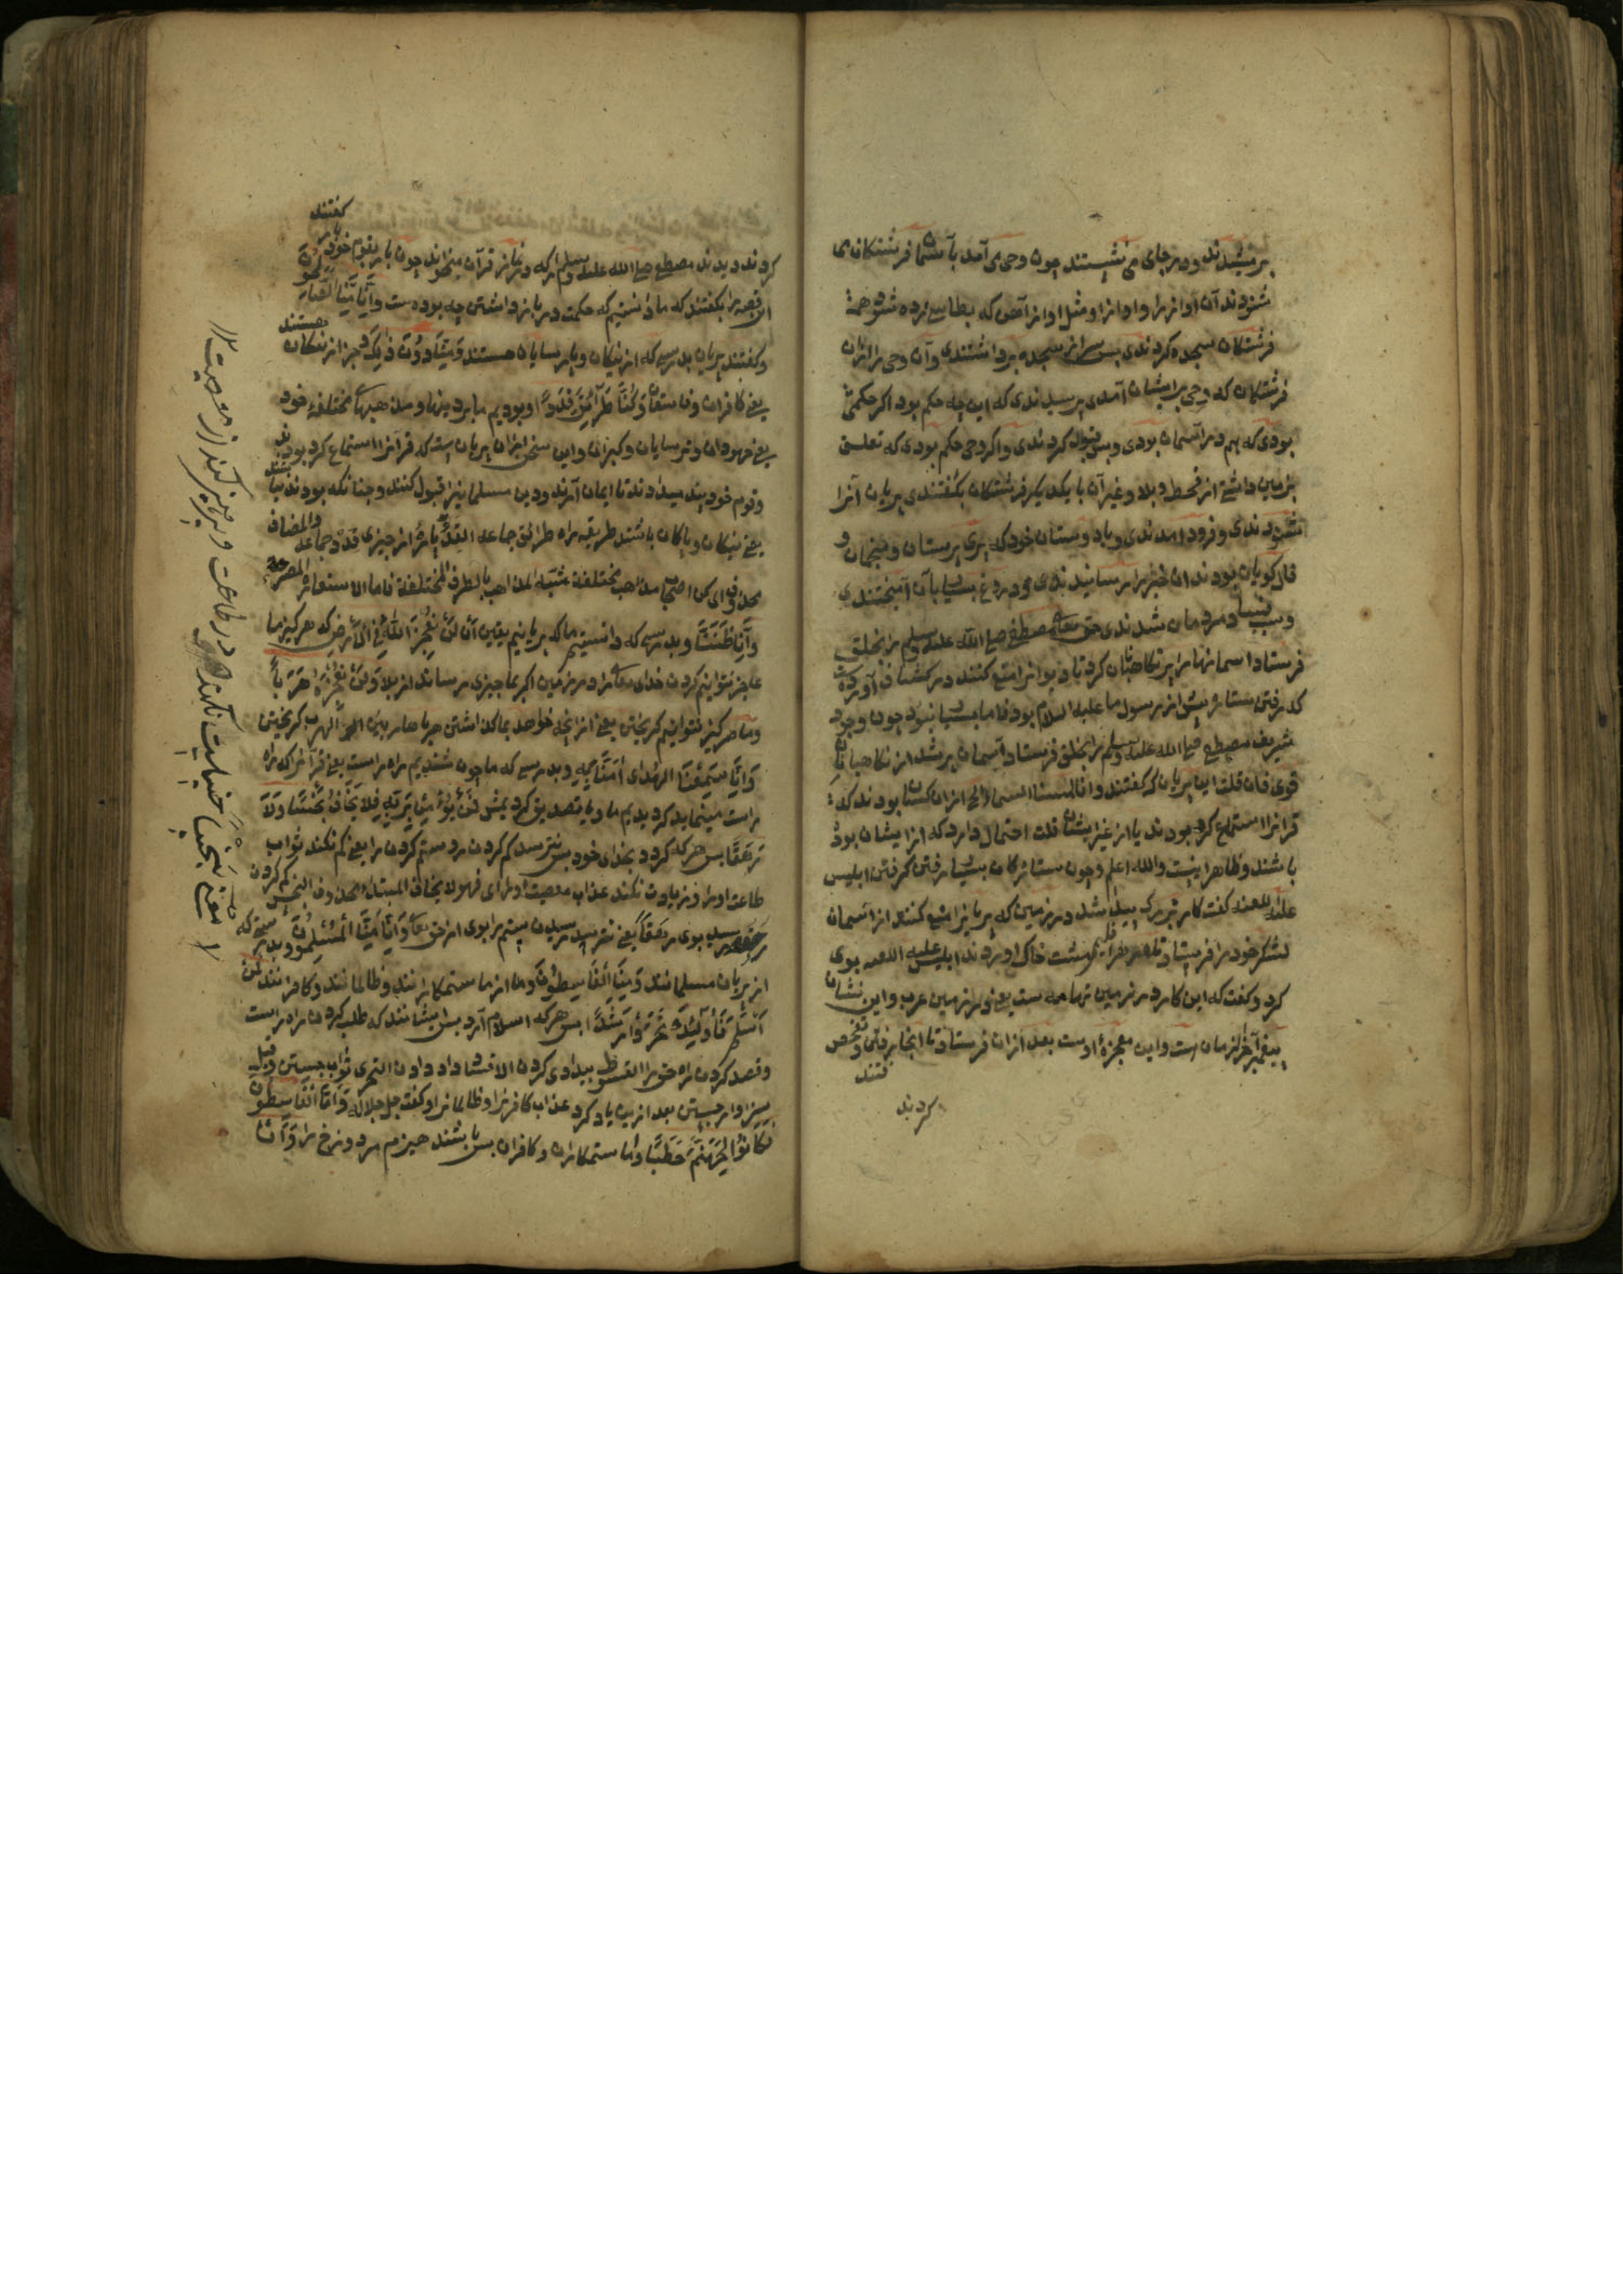 بر میشدند ودر جای می نشستند چون وحی می آمد بآسمان فرشتکان می
شنودند آن آواز را واواز او مثل اواز آهن که بطاسی زده شود همه
فرشتکان سجده کردندی پس سر از سجده برداشتندی وآن وحی را از آن
فرشتکان که وحی برایشان آمدی پرسیدندی که این چه حکم بود اکر حکمی
بودی که هم در آسمان بودی وبس قبول کردندی واکر وحی حکم بودی که تعلق
بزمین داشتی از قحط وبلا وغیر آن با یکدیکر فرشتکان بکفتندی پریان آنرا
شنودندی وفرود امدندی وبا دوستان خود که پری پرستان ومنجمان و
فال کویان بودند ان خبر را رسانیدندی ودروغ بسیار با آن آمیختندی
وسبب مردمان شدندی حق تعالی مصطفی صلی الله علیه وسلم را بخلق
فرستاد اسمانها را پر نکاهبان کرد تا دیوانرا منع کنند در کشاف آورده است
که رفتن ستاره پیش از رسول ما علیه السلام بود فاما بسیار نبود چون وجود
شریف مصطفی صلی الله علیه وسلم را بخلق فرستاد آسمان پر شد از نکاهبانان
قوی فان قلت این پریان که کفتند وانا لمسنا السماء الخ از ان کسان بودند که
قرانرا استماع کرده بودند یا از غیر ایشان قلت احتمال دارد که از ایشان بوده
باشند وظاهر اینست والله اعلم وچون ستارکان بسیار رفتن کرفتن ابلیس
علیه اللعنه کفت کار بزرک پیدا شد در زمین که پریانرا منع کنند از آسمان
لشکر خود را فرستاد تا از هر اقلیم مشت خاک اوردند ابلیس علیه اللعنه بوی
کرد وکفت که این کار در زمین تهامه ست یعنی در زمین عرب واین نشان
پیغمبر آخر الزمان است واین معجزهٔ اوست بعد ازان فرستاد تا انجا رفتن وتفحص
کردند
کردند ودیدند مصطفی صلی الله علیه وسلم را که در نماز قرآن میخواند چون باز بقوم خود
این قصه را بکفتند که ما دانستیم که حکمت در باز داشتن چه بوده ست وَأَنَّا مِنَّا الصَّالِحُونَ
وکفتند پریان بدرستی که از نیکان وپارسایان هستند وَمِنَّا دُونَ ذَٰلِكَ وجز از نیکان هستند
یعنی کافران وفاسقان كُنَّا طَرَائِقَ قِدَدًا وبودیم ما بر دینها ومذهبهاء مختلفهٔ خود
یعنی جهودان وترسایان وکبران واین سخن ازان پریان است که قرآنرا استماع کرد بودند
وقوم خود پند میدادند تا ایمان آرند ودین مسلمانیرا قبول کنند وچنانکه بودند نباشند
یعنی نیکان وپاکان باشند طریقه راه طرائق جماعه القدة پارهٔ از چیزی قدد جماعه والمضاف
محذوف ای کنا اصحاب مذاهب مختلفة شبه المذاهب بالطرق المختلفة فاما الاستعاره المصرحه
وَأَنَّا ظَنَنَّا وبدرستی که دانستیم ما که پریانیم بیقین أَنْ لَنْ نُعْجِزَ اللَّهَ فِي الْأَرْضِ که هرکیز ما
عاجز نتوانیم کردن خدای تعالی را در زمین اکر بما چیزی رساند از بلا وَلَنْ نُعْجِزَهُ هَرَبًا
وما هرکیز نتوانیم کریختن یعنی از انچه خواهد بما کذاشتن الهرب کریختن
وَأَنَّا لَمَّا سَمِعْنَا الْهُدَىٰ آمَنَّا بِهِ وبدرستی که ما چون شنیدیم راه راست یعنی قرآنرا که راه
راست مینماید کرویدیم ما وبا تصدیق کردیمش فَمَنْ يُؤْمِنْ بِرَبِّهِ فَلَا يَخَافُ بَخْسًا وَلَا
رَهَقًا پس هرکه کرود بخدای خود پس نترسد کم کردن مزد وستم کردن را یعنی کم نکند ثواب
طاعت اورا وزیادت نکند عذاب معصیت اورا ای فهو لا یخاف المبتداء محذوف البخس کم کردن
رسید بوی رهقا یعنی نترسد رسیدن ستم را بوی از حق تعالی وَأَنَّا مِنَّا الْمُسْلِمُونَ وبدرستی که
از پریان مسلمانند وَمِنَّا الْقَاسِطُونَ وما از ما ستمکارانند وظالمانند وکافرانند فَمَنْ
أَسْلَمَ فَأُولَٰئِكَ تَحَرَّوْا رَشَدًا پس هرکه اسلام آرد پس ایشانند که طلب کردن راه راست
وقصد کردن راه حق را القسوط بیدادی کردن الاقساط داد دادن التحری ثواب جستن وقیل
سزاوار جستن بعد ازین یاد کرد عذاب کافرانرا وظالمانرا وکفت جل جلاله وَأَمَّا الْقَاسِطُونَ
فَكَانُوا لِجَهَنَّمَ حَطَبًا واما ستمکاران وکافران پس باشند هیزم مر دوزخ را وَأَنْ
در طاعت وپرهیز کند از معصیت ۱۲